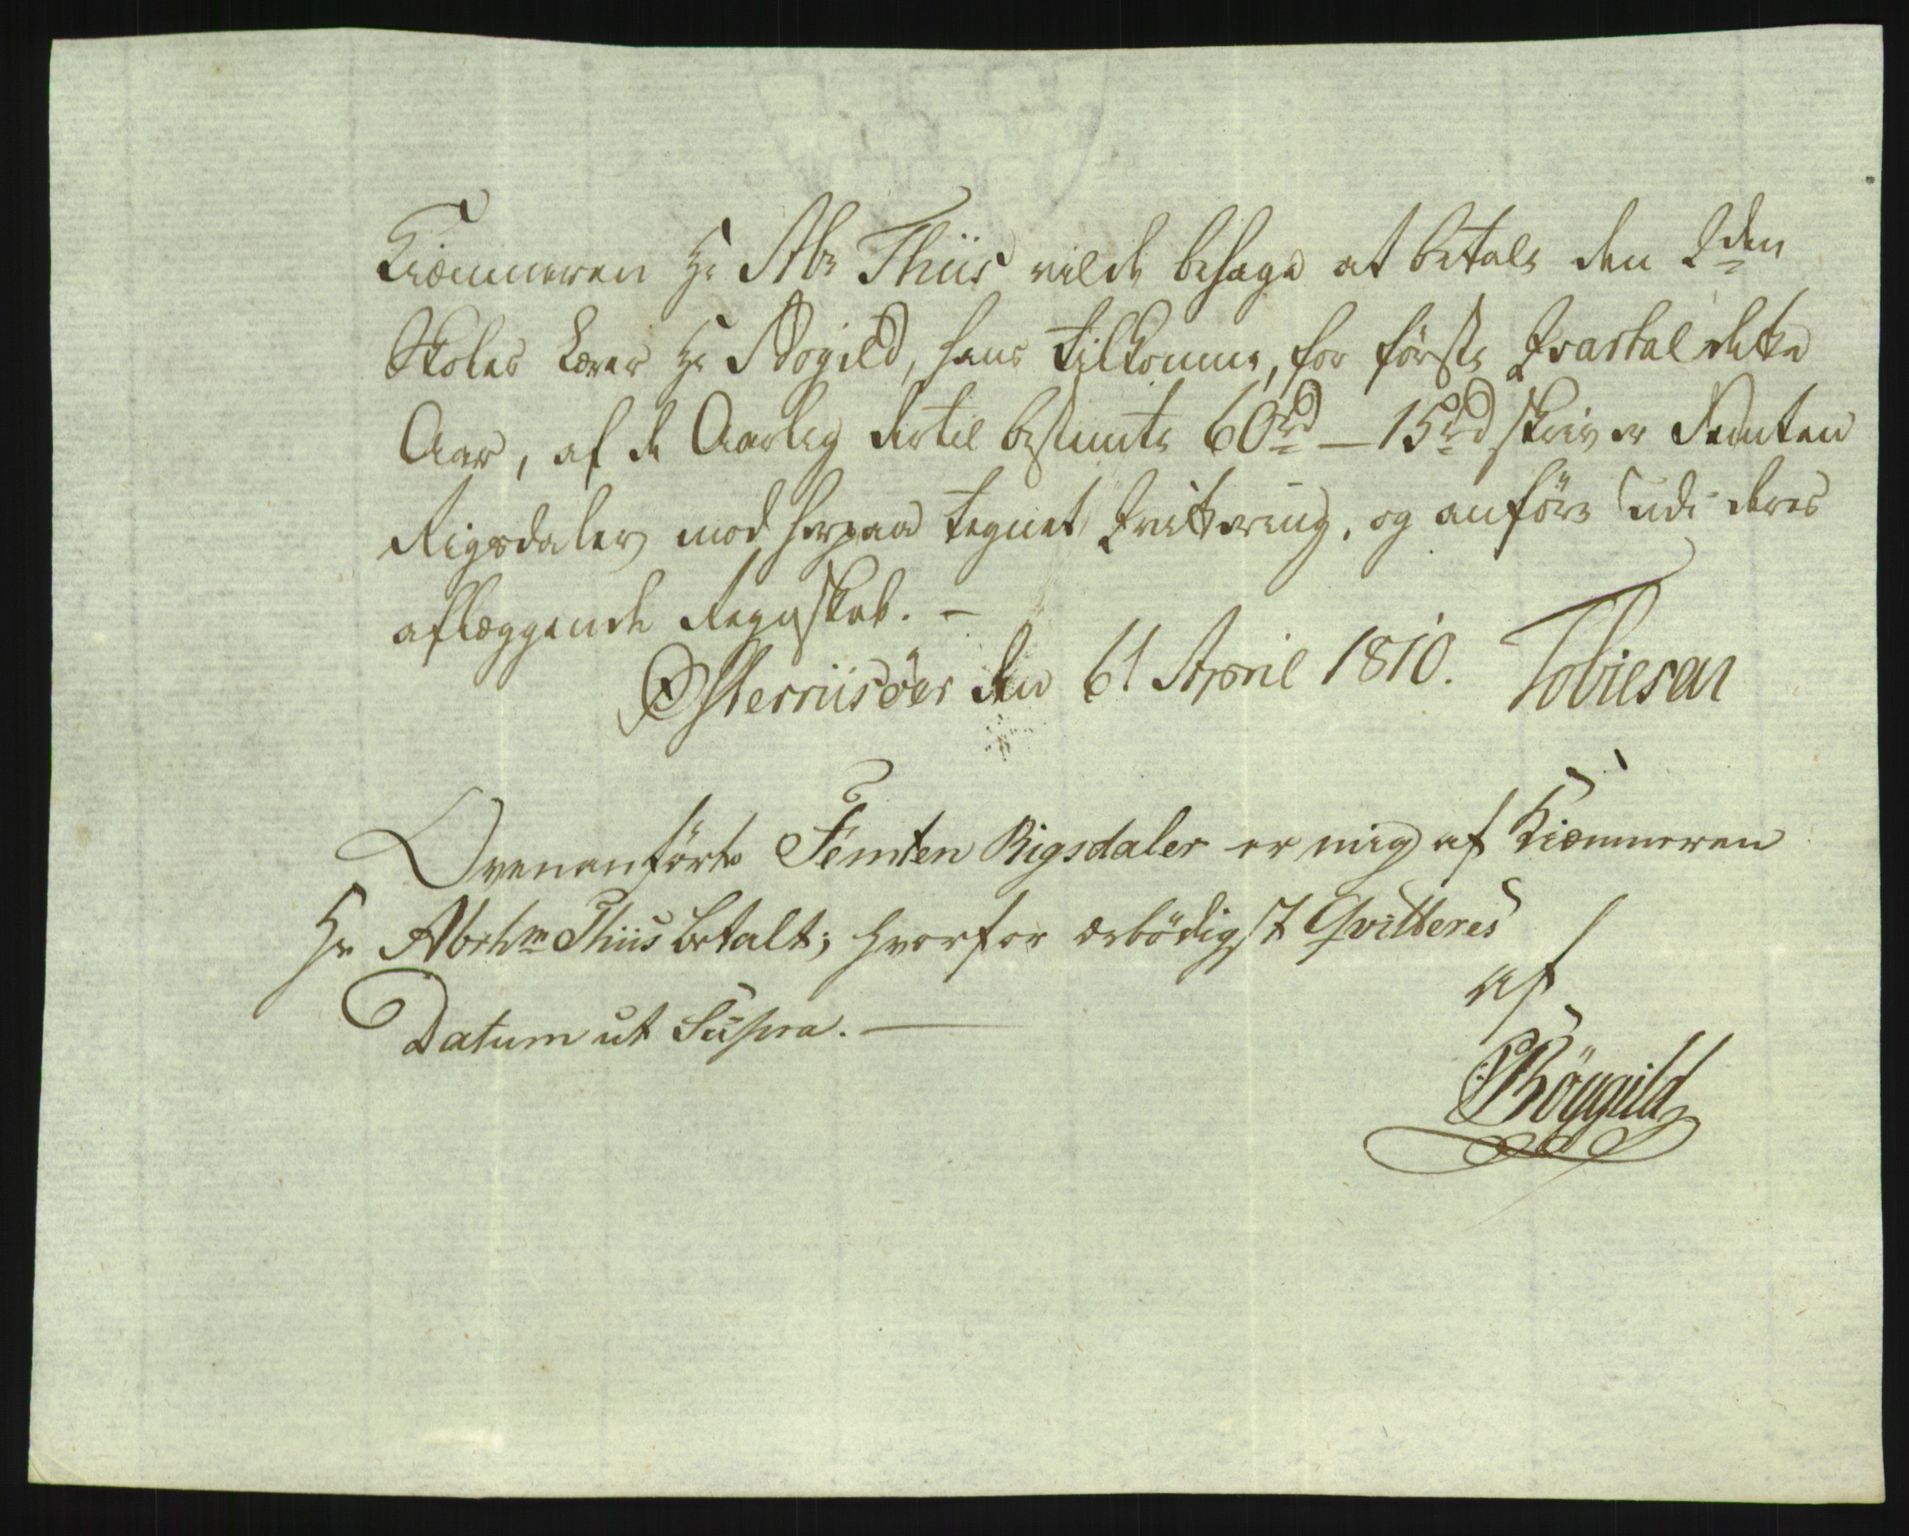 Kiæmneren Hr Abr Thiis vilde behage at betale den 2den
Skoles Lærer Hr Røgild, hans tilkomme, for første Qvartal dette
Aar, af de Aarlig dertil bestemte 60rd – 15rd skriver Femten
Rigsdaler mod herpaa tegnet Qvittering, og anføre udi deres
aflæggende Regnskab. –
Østerriisøer den 6t April 1810. Tobiesen
Ovenanførte Femten Rigsdaler er mig af Kiæmneren
Hr Abrhm Thiis betalt; hvorfor ærbødigst Qvitteres
af
Datum ut Supra. —
Røygild